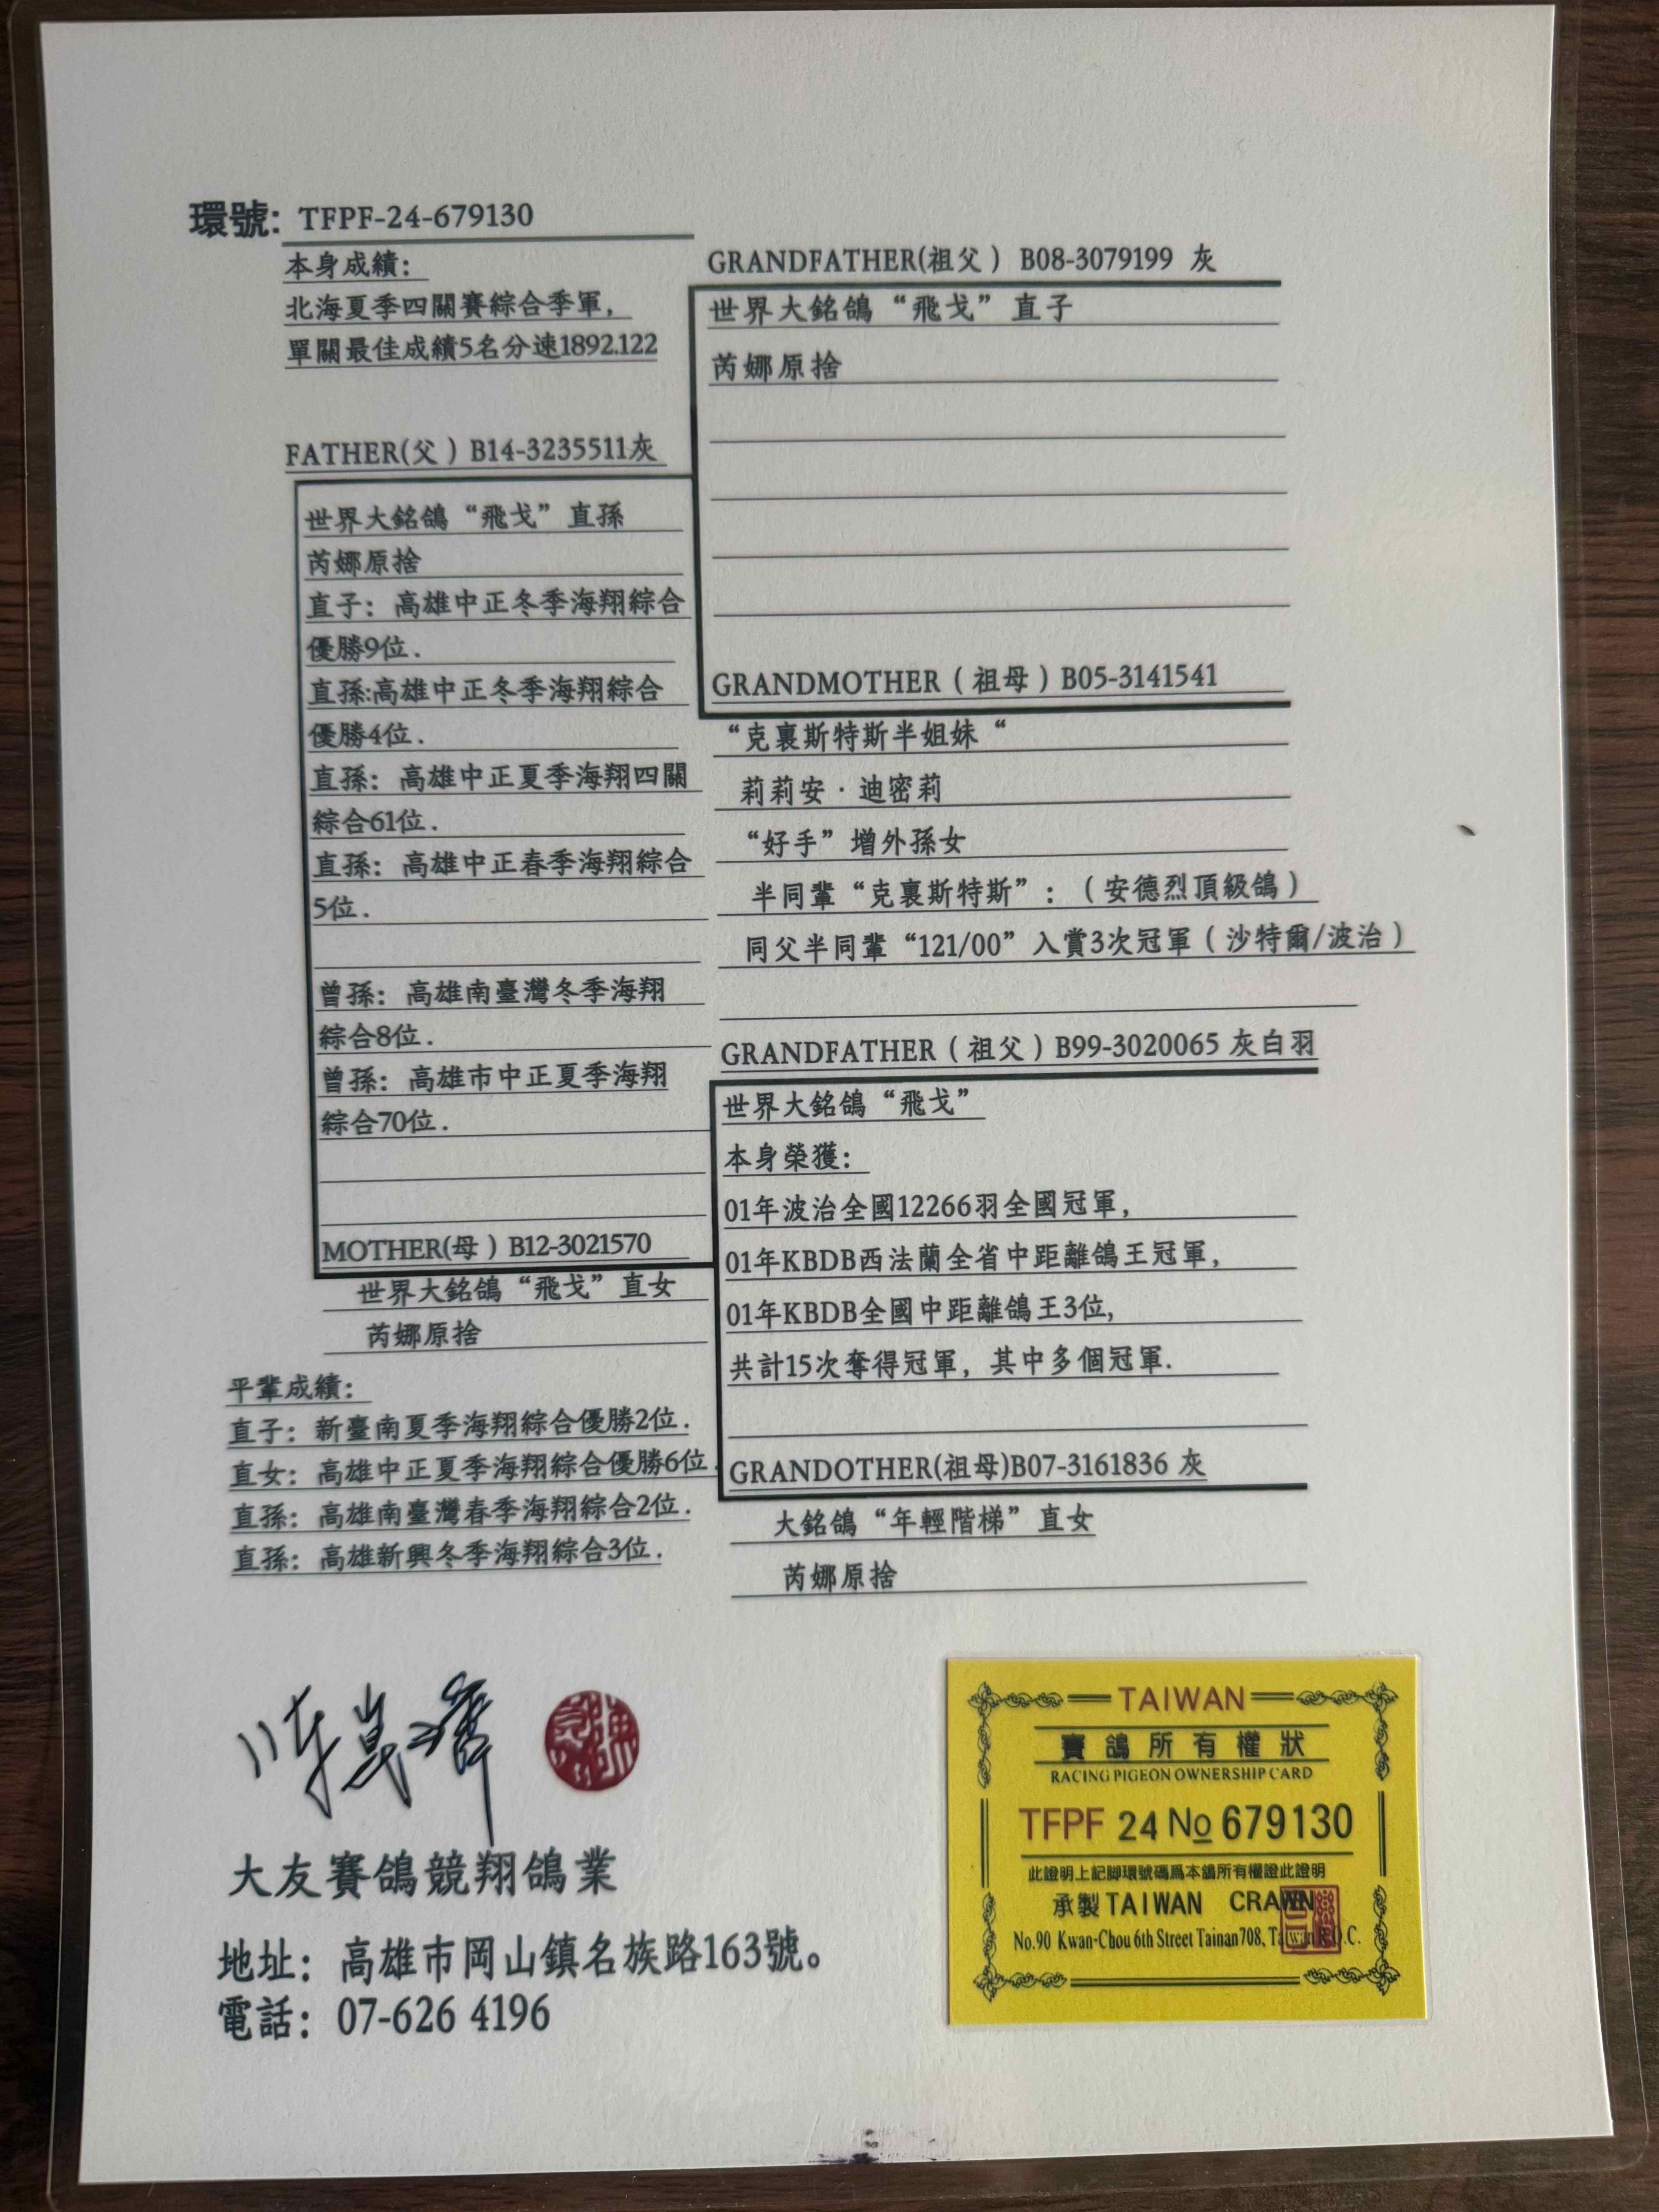 環號: TFPF-24-679130
本身成績:
北海夏季四關賽綜合季軍,
單關最佳成績5名分速1892.122
FATHER(父 ) B14-3235511灰
世界大銘鴿“飛戈”直孫
芮娜原捨
直子: 高雄中正冬季海翔綜合
優勝9位.
直孫:高雄中正冬季海翔綜合
優勝4位.
直孫: 高雄中正夏季海翔四關
綜合61位.
直孫: 高雄中正春季海翔綜合
5位.
曾孫: 高雄南臺灣冬季海翔
綜合8位.
曾孫: 高雄市中正夏季海翔
綜合70位.
MOTHER(母 ) B12-3021570
世界大銘鴿“飛戈”直女
芮娜原捨
平輩成績:
直子: 新臺南夏季海翔綜合優勝2位.
直女: 高雄中正夏季海翔綜合優勝6位.
直孫: 高雄南臺灣春季海翔綜合2位.
直孫: 高雄新興冬季海翔綜合3位.
GRANDFATHER(祖父 ) B08-3079199 灰
世界大銘鴿“飛戈”直子
芮娜原捨
GRANDMOTHER ( 祖母 ) B05-3141541
“克裏斯特斯半姐妹“
莉莉安·迪密莉
“好手”增外孫女
半同輩“克裏斯特斯”: (安德烈頂級鴿)
同父半同輩“121/00”入賞3次冠軍 ( 沙特爾/波治 )
GRANDFATHER ( 祖父 ) B99-3020065 灰白羽
世界大銘鴿“飛戈”
本身榮獲:
01年波治全國12266羽全國冠軍,
01年KBDB西法蘭全省中距離鴿王冠軍,
01年KBDB全國中距離鴿王3位,
共計15次奪得冠軍, 其中多個冠軍.
GRANDOTHER(祖母)B07-3161836 灰
大銘鴿“年輕階梯”直女
芮娜原捨
大友賽鴿競翔鴿業
地址: 高雄市岡山鎮名族路163號。
電話: 07-626 4196
TAIWAN
賽鴿所有權狀
RACING PIGEON OWNERSHIP CARD
TFPF 24 No 679130
此證明上記脚環號碼爲本鴿所有權證此證明
承製TAIWAN CRAWN
No.90 Kwan-Chou 6th Street Tainan708, Taiwan R.O.C.